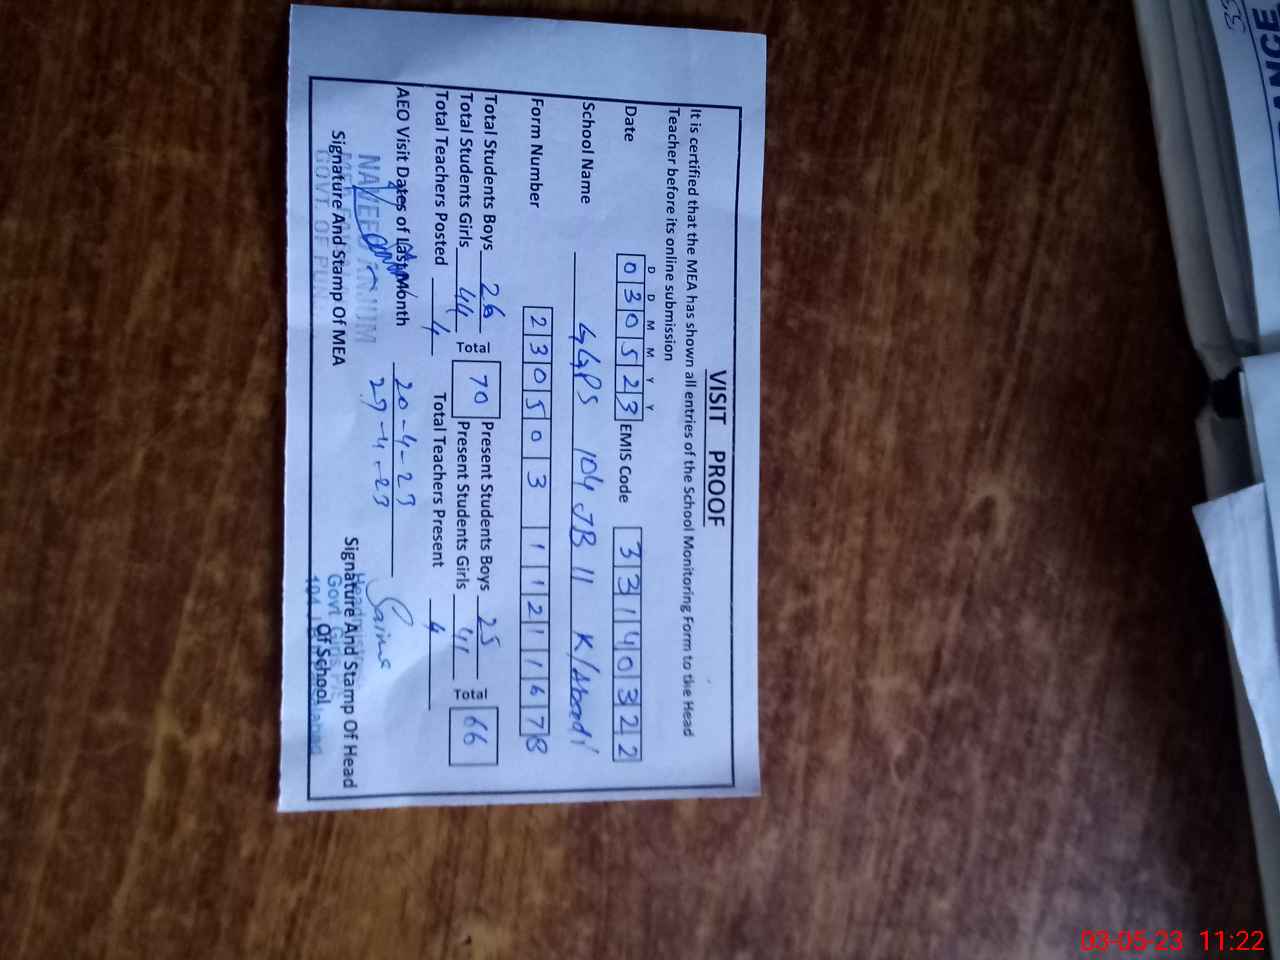 VISIT PROOF
It is certified that the MEA has shown all entries of the School Monitoring Form to the Head
Teacher before its online submission
D D M M Y Y
Date 030523 EMIS Code 33140322
School Name GGPS 104 JB II K/Abadi
Form Number 23050311211678
Total Students Boys 26 Total 70 Present Students Boys 25 Total 66
Total Students Girls 44 Present Students Girls 41
Total Teachers Posted 4 Total Teachers Present 4
AEO Visit Dates of Last Month 20-4-23
29-4-23
Saima
NAVEED ANJUM
GOVT. OF
Signature And Stamp Of MEA
Signature And Stamp Of Head
Of School
Govt Girls
104
03-05-23 11:22